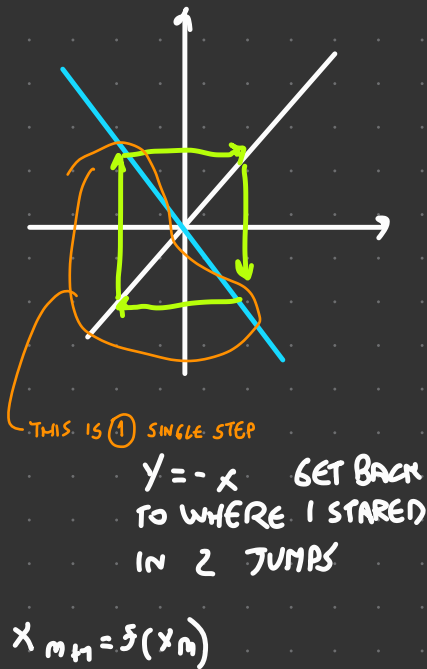 THIS IS 1 SINGLE STEP
Y = - x GET BACK
TO WHERE I STARED
IN 2 JUMPS
x m+1 = f(x m)